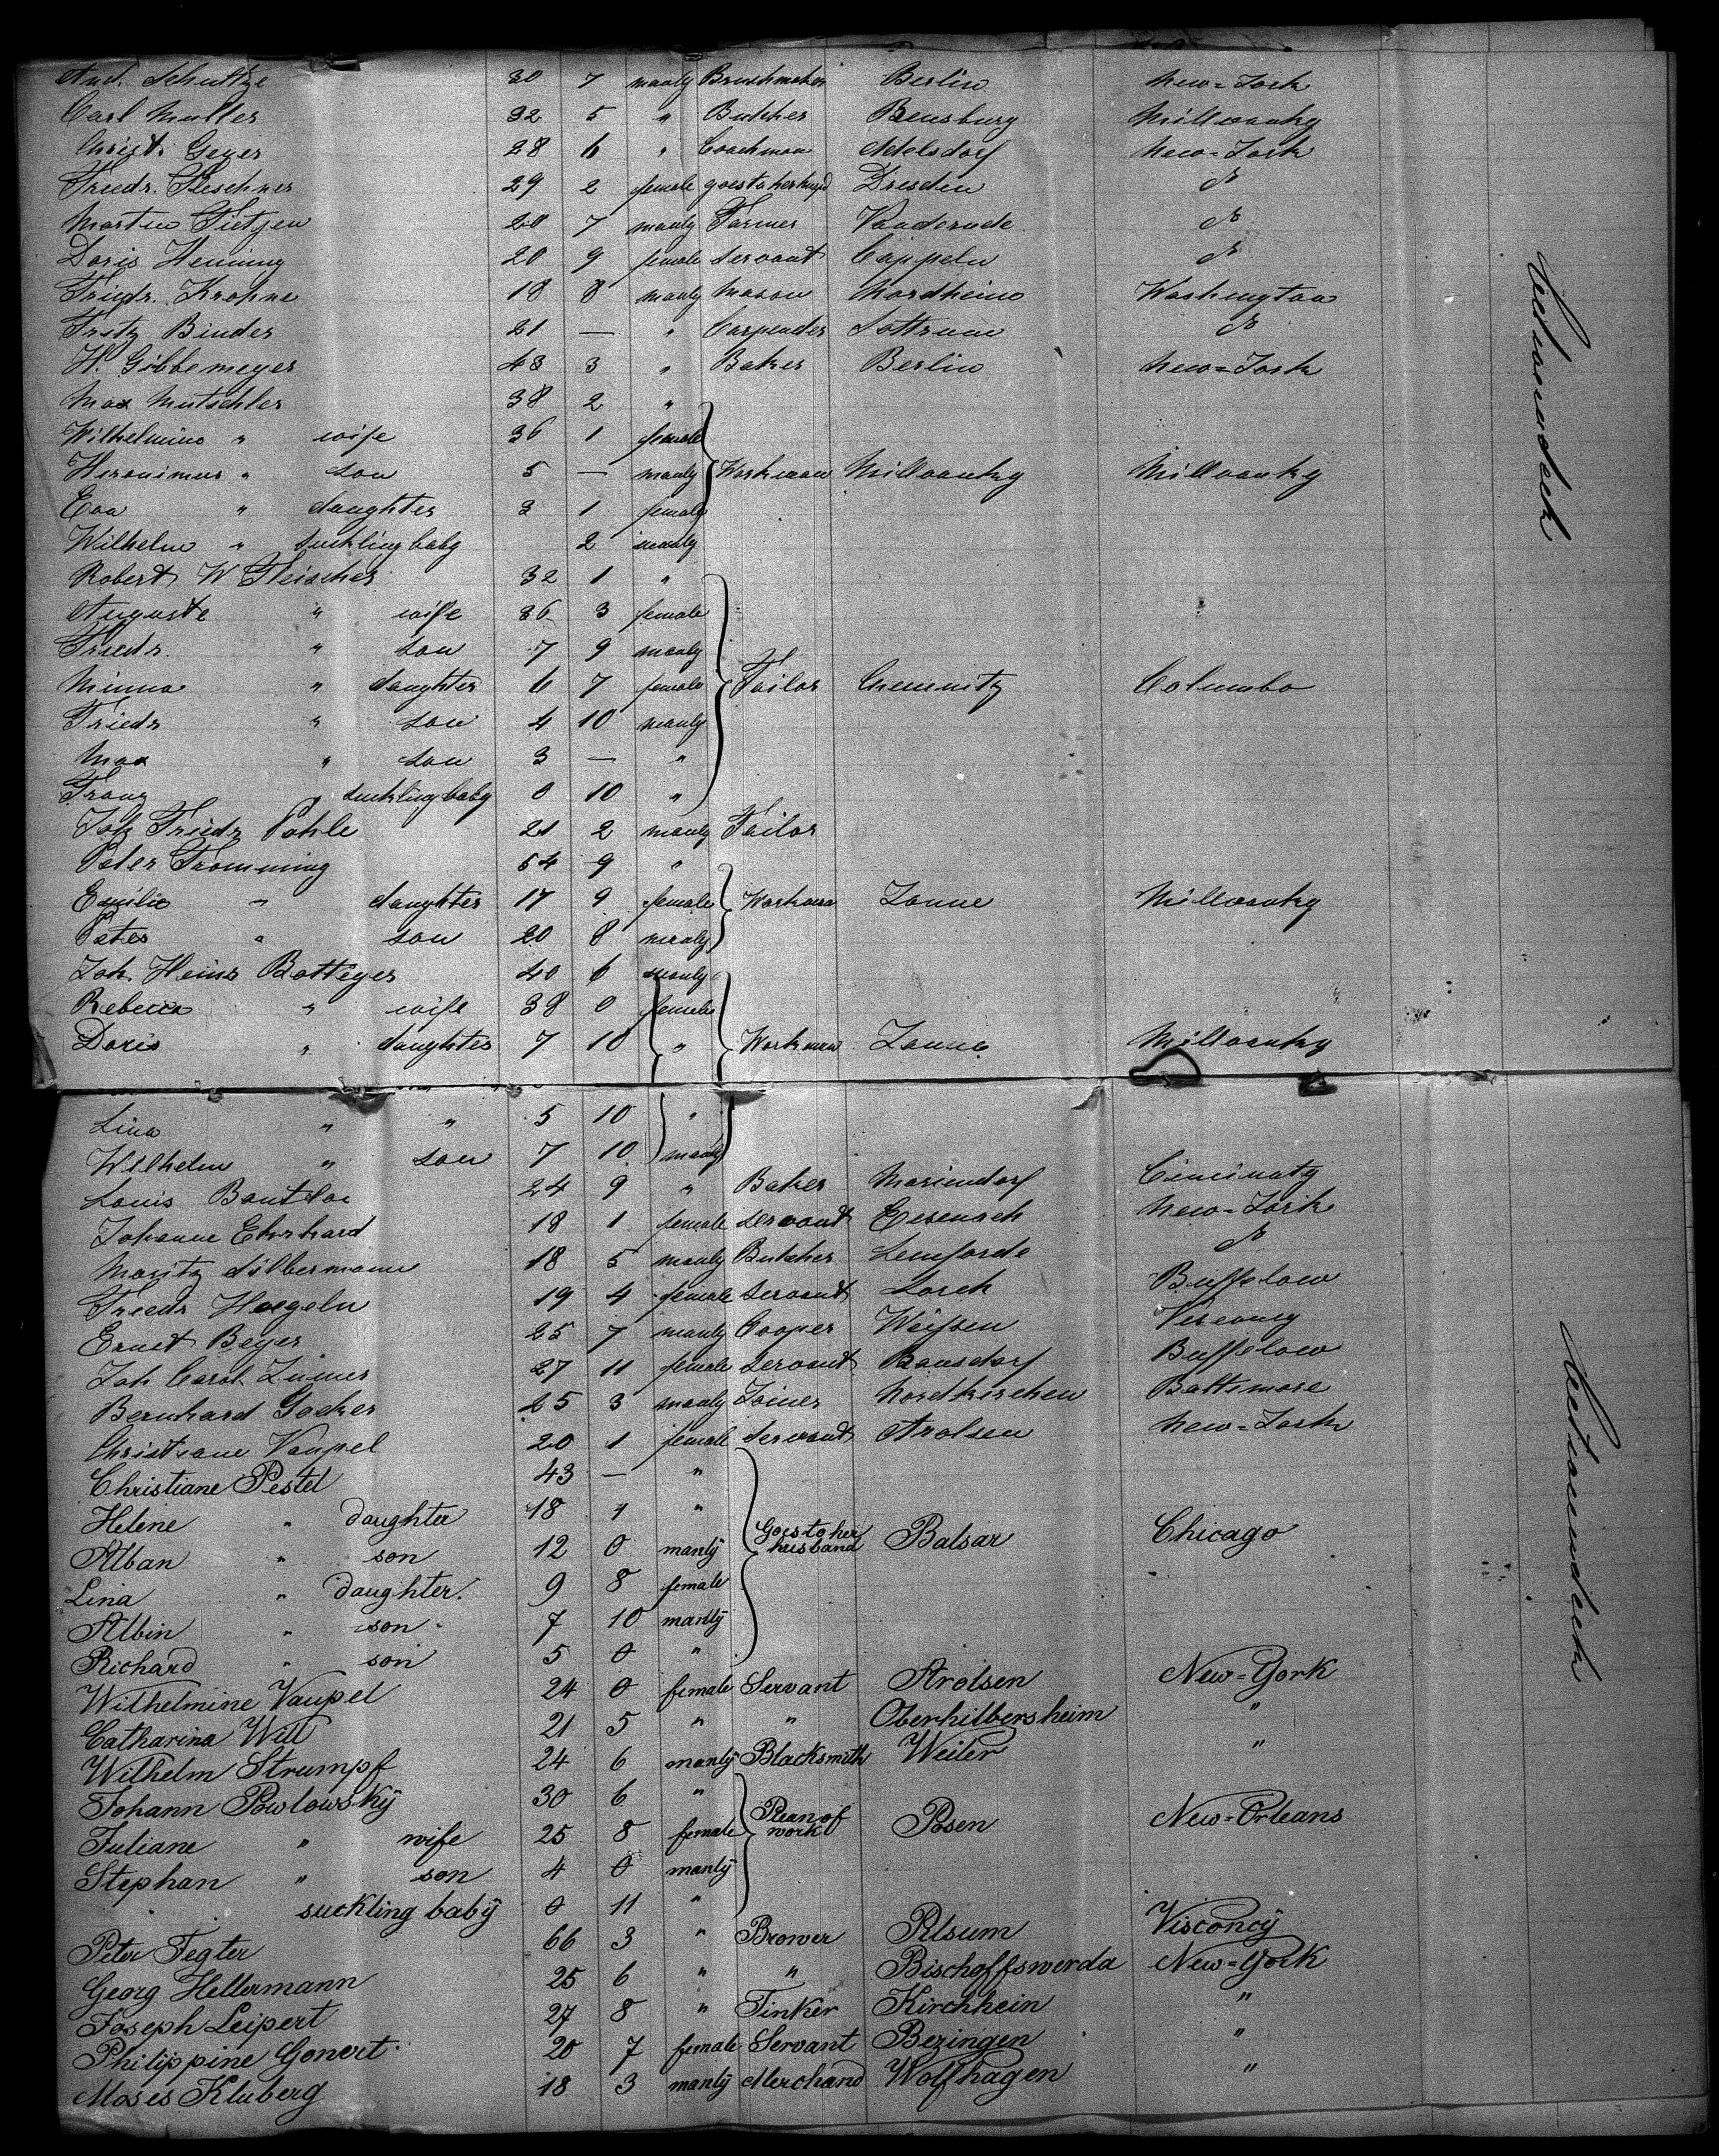 And. Schultze 30 7 manly Brushmaker Berlin New=York
Carl Muller 32 5 " Butcher Rensburg Millvauky
Christ. Geyer 28 6 " Coachman Adelsdorf New=York
Friedr. Fleschner 29 2 female goes to her husbd Dresden
Martin Tietjen 20 7 manly Farmer
Doris Henning 20 9 female servant Cappeln
Friedr. Krohne 18 8 manly mason Nordheim Washington
Fritz Binder 21 — " Carpender Sottrum
H. Gibbemeyer 43 3 " Baker Berlin New=York
Max Mutschler 38 2 "
Wilhelmine " wife 36 1 female
Heronimus " son 5 — manly Workman Millvauky Millvauky
Eva " daughter 3 1 female
Wilhelm " suckling baby 2 manly
Robert W Fleischer 32 1 "
Auguste " wife 36 3 female
Friedr. " son 7 9 manly
Minna " daughter 6 7 female Tailor Chemnitz Columbo
Friedr " son 4 10 manly
Max " son 3 — "
Franz " suckling baby 0 10 "
Joh Friedr Pohle 21 2 manly Tailor
Peter Fromming 54 9 "
Emilie " daughter 17 9 female Workman Zonne Millvauky
Peter " son 20 8 manly
Joh. Heinr Botteyer 40 6 manly
Rebecca " wife 38 0 female
Doris " daughter 7 10 " Workman Zonne Millvauky
Lina " " 5 10 "
Wilhelm " son 7 10 manly
Louis 24 9 " Baker Mariendorf Cincinaty
Johanne Ehrhard 18 1 female servant Eisenach New=York
Moritz Silbermann 18 5 manly Butcher Lemforde
Friedr Hoegeln 19 4 female servant Lorch Buffelow
Ernst Beyer 25 7 manly Cooper Weissen Visconcy
Joh Carol. Zumer 27 11 female servant Bansdorf Buffelow
Bernhard Gocker 25 3 manly Joiner Nordkirchen Baltimore
Christiane Vaupel 20 1 female servant Arolsen New=York
Christiane Pestel 43 — "
Helene " daughter 18 1 "
Alban " son 12 0 manly Goes to her husband Balsar Chicago
Lina " daughter. 9 8 female
Albin " son 7 10 manly
Richard " son 5 0 "
Wilhelmine Vaupel 24 0 female Servant Arolsen New=York
Catharina Will 21 5 " " Oberhilbersheim "
Wilhelm Strumpf 24 6 manly Blacksmith Weiler "
Johann Powlowsky 30 6 "
Juliane " wife 25 8 female Plean of work Posen New=Orleans
Stephan " son 4 0 manly
suckling baby 0 11 "
Peter Tegter 66 3 " Brower Pilsum Visconcy
Georg Hellermann 25 6 " " Bischoffswerda New=York
Joseph Leipert 27 8 " Tinker Kirchhein "
Philippine Gonert 20 7 female Servant Bezingen "
Moses Kluberg 18 3 manly Merchand Wolfhagen "